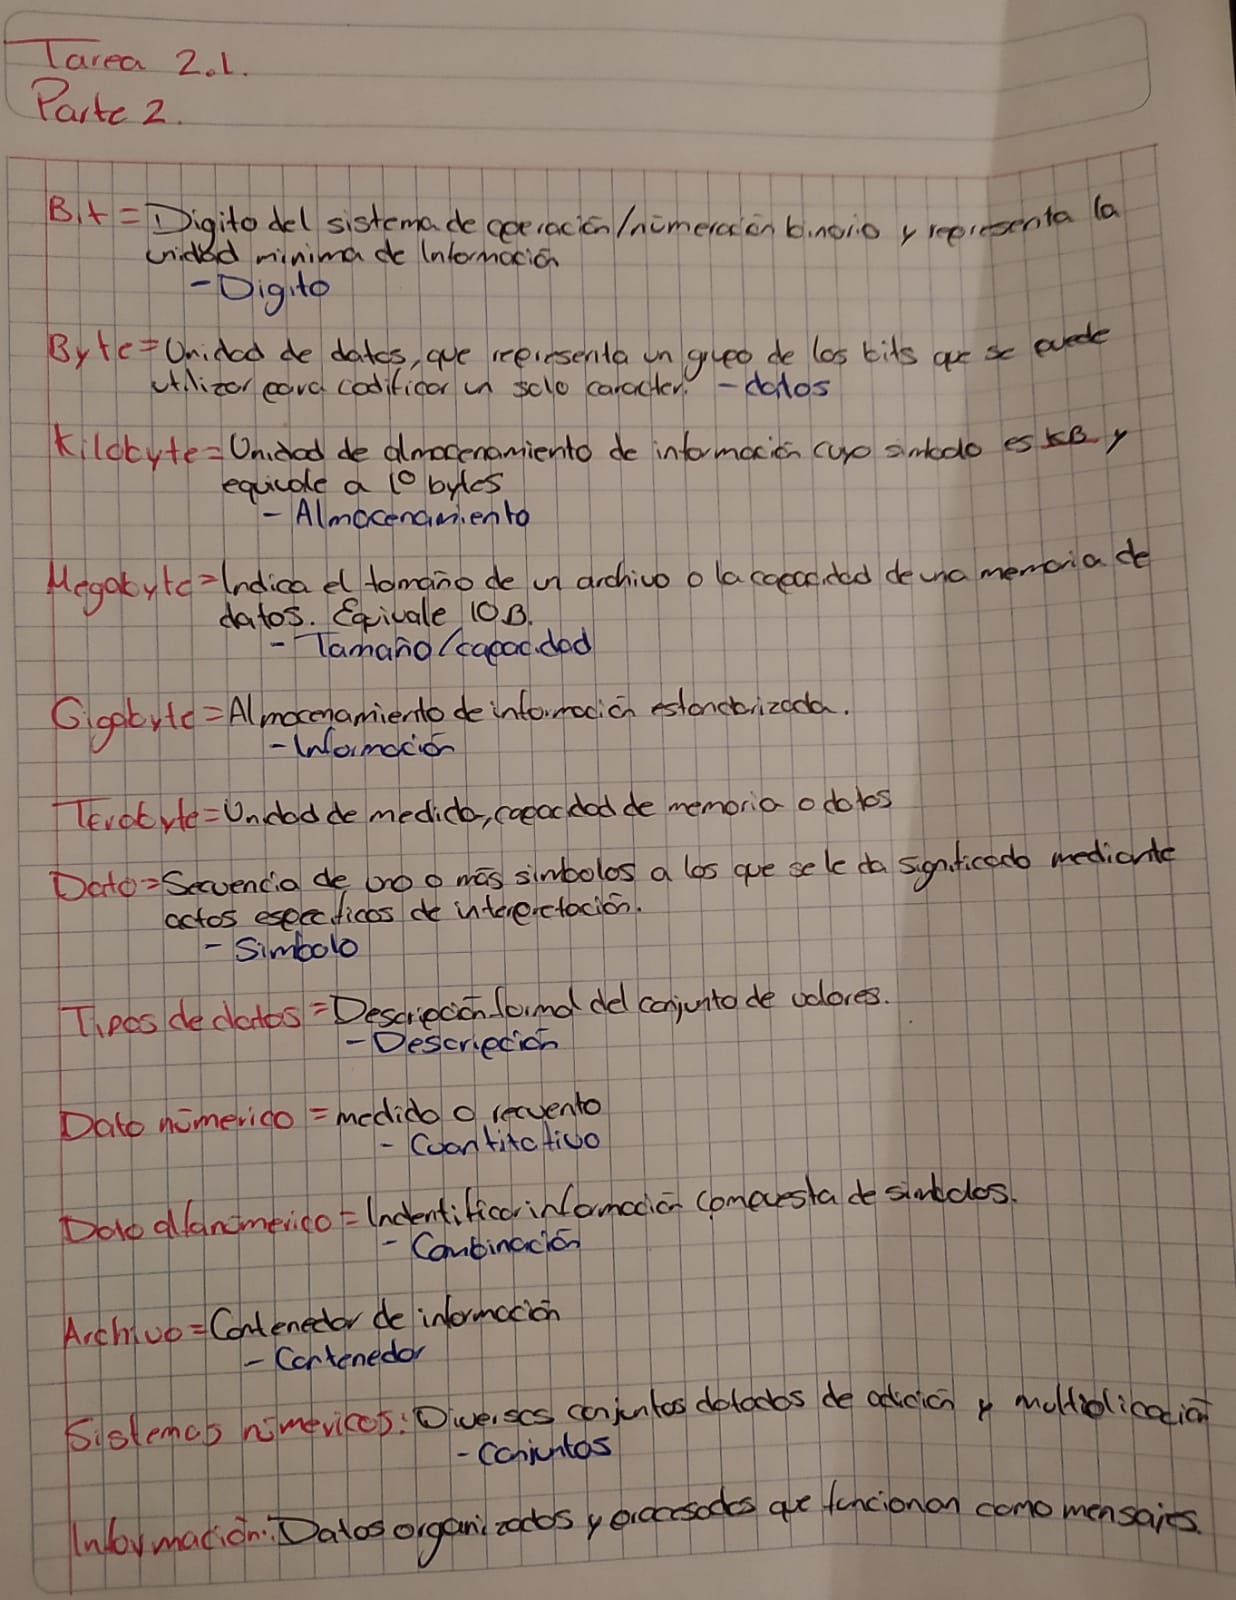 Tarea 2.1.
Parte 2.
Bit = Digito del sistema de operación/númeración binario y representa la
unidad minima de Información
- Digito
Byte = Unidad de datos, que representa un grupo de los bits que se puede
utilizar para codificar un solo caracter. - datos
Kilobyte = Unidad de almacenamiento de información cuyo simbolo es KB y
equivale a 10 bytes
- Almacenamiento
Megabyte = Indica el tamaño de un archivo o la capacidad de una memoria de
datos. Equivale 10B.
- Tamaño/capacidad
Gigabyte = Almacenamiento de información estandarizada.
- Información
Terabyte = Unidad de medida, capacidad de memoria o datos
Dato = Secuencia de uno o más simbolos a los que se le da significado mediante
actos especificos de interpretación.
- Simbolo
Tipos de datos = Descripción formal del conjunto de valores.
- Descripción
Dato númerico = medido o recuento
- Cuantitativo
Dato alfanúmerico = Indentificar información compuesta de simbolos.
- Combinación
Archivo = Contenedor de información
- Contenedor
Sistemas númericos: Diversos conjuntos dotados de adición y multiplicación
- Conjuntos
Información: Datos organizados y procesados que funcionan como mensajes.